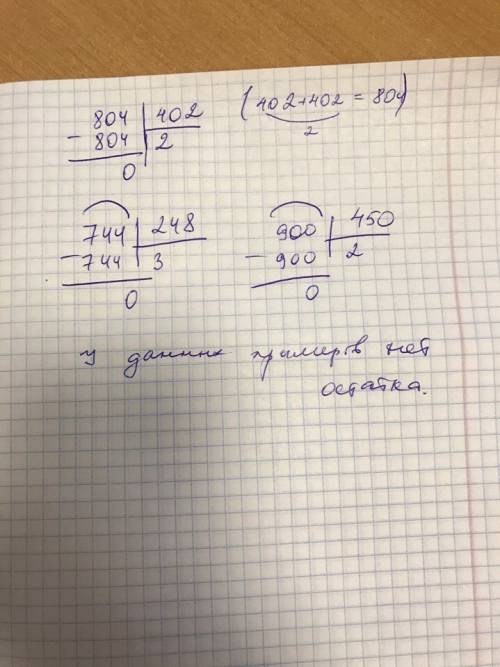 804 | 402 (402+402 = 804)
- 804 | 2 2
0
744 | 248 900 | 450
- 744 | 3 - 900 | 2
0 0
У данных примеров нет
остатка.